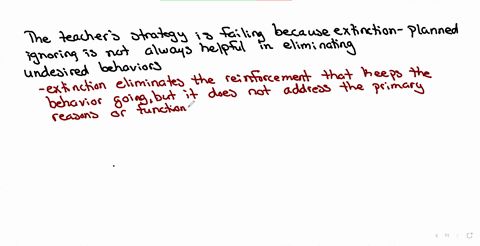 The teacher's strategy is failing because extinction - planned
ignoring is not always helpful in eliminating
undesired behaviors
- extinction eliminates the reinforcement that keeps the
behavior going, but it does not address the primary
reasons or function